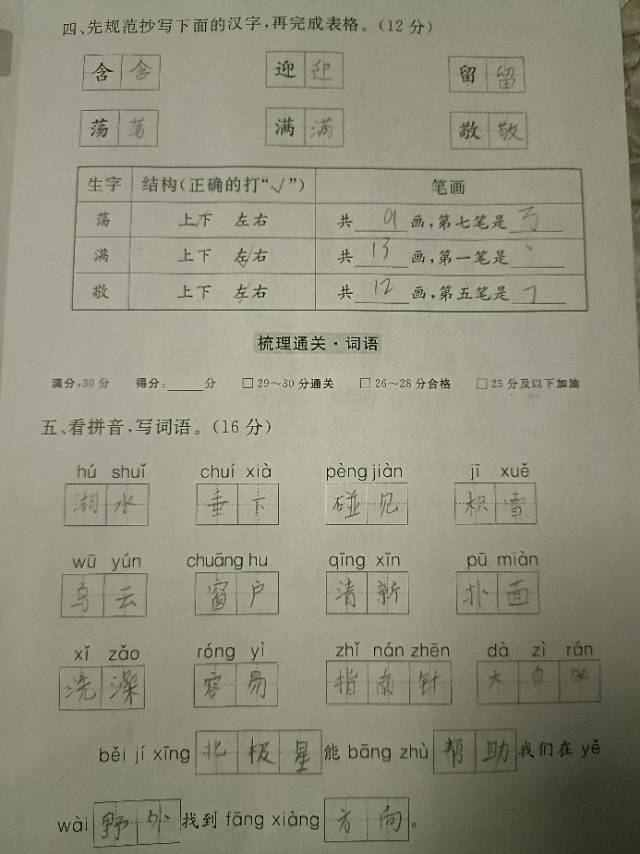 四、先规范抄写下面的汉字,再完成表格。(12分)
含 含 迎 迎 留 留
荡 荡 满 满 敬 敬
生字 结构(正确的打“√”) 笔画
荡 上下 左右 共 9 画,第七笔是 ㇡
满 上下 左右 共 13 画,第一笔是 丶
敬 上下 左右 共 12 画,第五笔是 ㇆
梳理通关·词语
满分:30分 得分:____分 □29~30分通关 □26~28分合格 □25分及以下加油
五、看拼音,写词语。(16分)
hú shuǐ chuí xià pèng jiàn jī xuě
湖水 垂下 碰见 积雪
wū yún chuāng hu qīng xīn pū miàn
乌云 窗户 清新 扑面
xǐ zǎo róng yì zhǐ nán zhēn dà zì rán
洗澡 容易 指南针 大自然
běi jí xīng 北极星 能 bāng zhù 帮助 我们在 yě
wài 野外 找到 fāng xiàng 方向 。